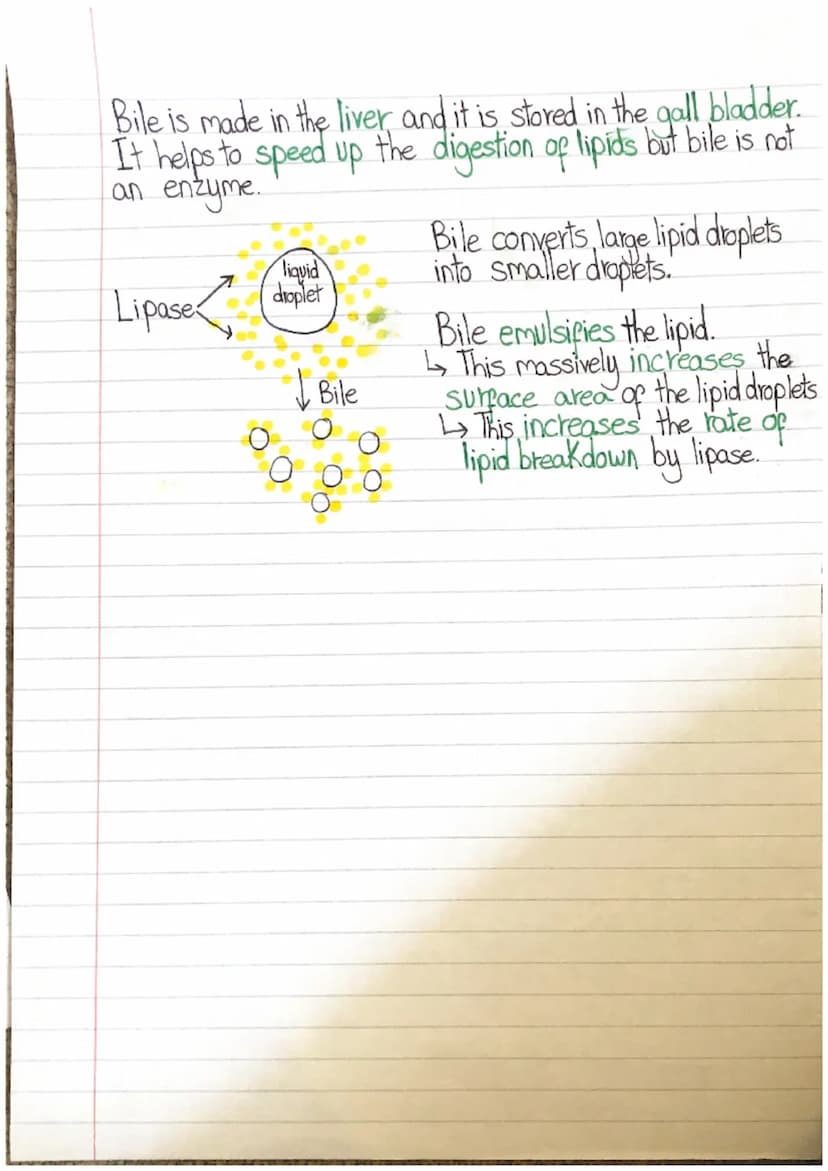 Bile is made in the liver and it is stored in the gall bladder.
It helps to speed up the digestion of lipids but bile is not
an enzyme.
liquid
droplet
Lipase
Bile
Bile converts large lipid droplets
into smaller droplets.
Bile emulsifies the lipid.
↳ This massively increases the
surface area of the lipid droplets
↳ This increases the rate of
lipid breakdown by lipase.